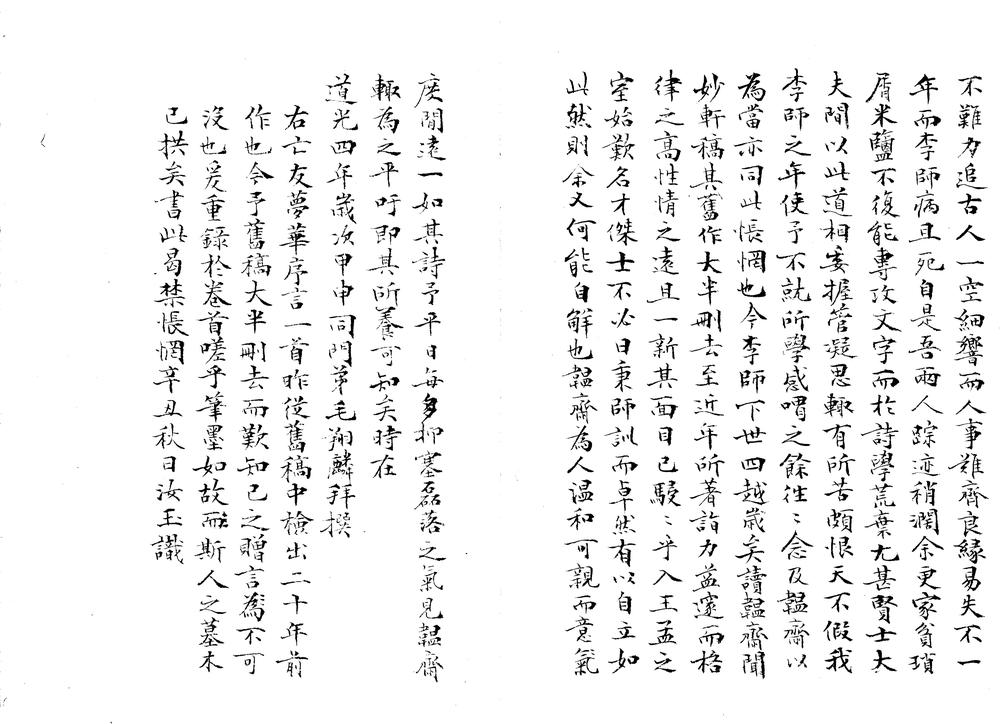 不難力追古人一空細響而人事難齊良緣易失不一
年而李師病且死自是吾兩人踪迹稍濶余更家貧瑣
屑米鹽不復能專攻文字而於詩學荒棄尤甚賢士大
夫間以此道相委握管凝思輙有所苦頗恨天不假我
李師之年使予不就所學感喟之餘徃〻念及韞齋以
為當亦同此悵惘也今李師下世四越歲矣讀韞齋閒
妙軒稿其舊作大半刪去至近年所著詣力益邃而格
律之高性情之遠且一新其面目已駸〻乎入王孟之
室始歎名才傑士不必日秉師訓而卓然有以自立如
此然則余又何能自解也韞齋為人温和可親而意氣
庱間遠一如其詩予平日每多抑塞磊落之氣見韞齋
輙為之平吁即其所養可知矣時在
道光四年歲次甲申同門弟毛翔麟拜撰
右亡友夢華序言一首昨從舊稿中檢出二十年前
作也今予舊稿大半刪去而歎知己之贈言為不可
沒也爰重録於卷首嗟乎筆墨如故而斯人之墓木
已拱矣書此曷禁悵惘辛丑秋日汝玉識